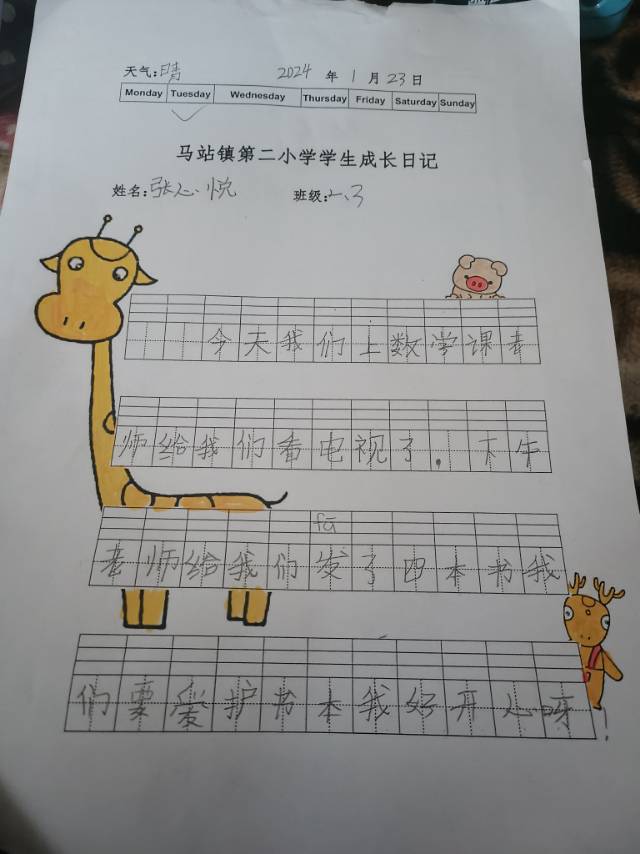 天气:晴 2024 年 1 月 23 日
Monday Tuesday Wednesday Thursday Friday Saturday Sunday
马站镇第二小学学生成长日记
姓名:张心悦 班级:2.3
今天我们上数学课老
师给我们看电视了。下午
fā
老师给我们发了四本书我
们要爱护书本我好开心呀!